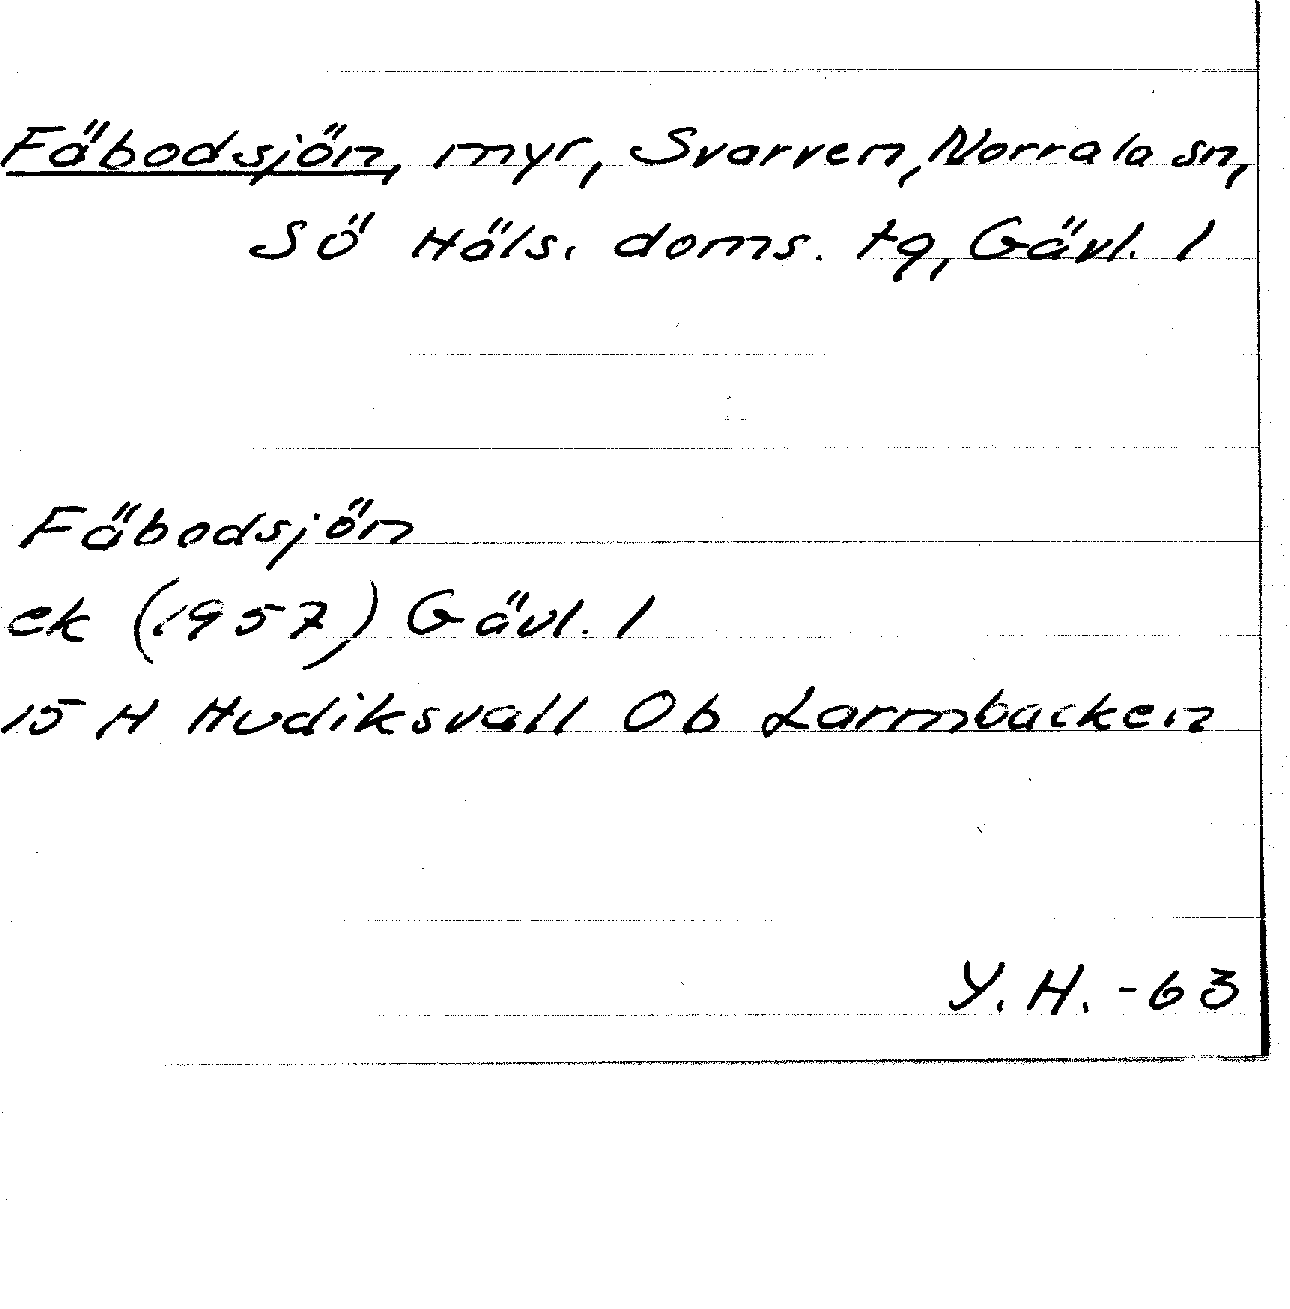 Fäbodsjön, myr, Svarven, Norrala sn,
Sö Häls. doms. tg, Gävl. l
Fäbodsjön
ek (1957) Gävl. l
15 H Hudiksvall Ob Larmbacken
Y. H. - 63